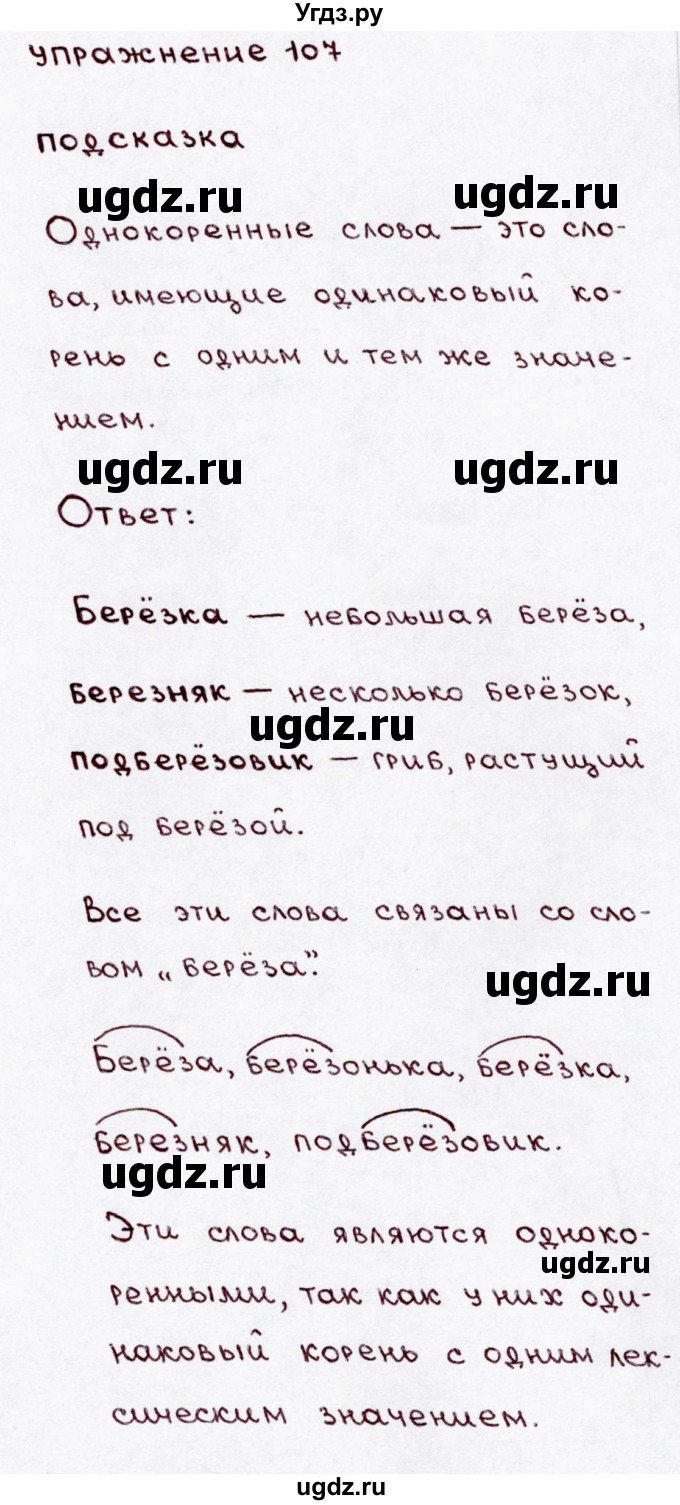 Угдз.ру
упражнение 107
подсказка
ugdz.ru ugdz.ru
Однокоренные слова — это сло-
ва, имеющие одинаковый ко-
рень с одним и тем же значе-
нием.
ugdz.ru ugdz.ru
Ответ:
Берёзка — небольшая берёза,
березняк — несколько берёзок,
ugdz.ru
подберёзовик — гриб, растущий
под берёзой.
Все эти слова связаны со сло-
вом „берёза".
ugdz.ru
Берёза, берёзонька, берёзка,
березняк, подберёзовик.
ugdz.ru
Эти слова являются одноко-
ugdz.ru
ренными, так как у них оди-
наковый корень с одним лек-
сическим значением.
ugdz.ru